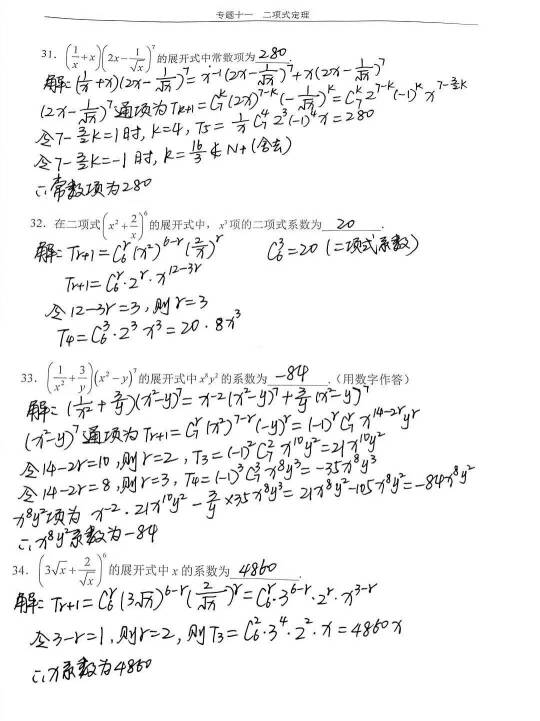 专题十一 二项式定理
31. (1/x+x)(2x-1/√x)^7 的展开式中常数项为 280.
解: (1/x+x)(2x-1/√x)^7=x^-1(2x-1/√x)^7+x(2x-1/√x)^7
(2x-1/√x)^7通项为Tk+1=C_7^k(2x)^(7-k)(-1/√x)^k=C_7^k 2^(7-k)(-1)^k x^(7-3/2k)
令7-3/2k=1时, k=4, T5=1/x C_7^4 2^3(-1)^4 x=280
令7-3/2k=-1时, k=16/3∉N+(舍去)
∴常数项为280
32. 在二项式(x²+2/x)^6的展开式中, x³项的二项式系数为 20
解: Tr+1=C_6^r(x²)^(6-r)(2/x)^r C_6^3=20(二项式系数)
Tr+1=C_6^r·2^r·x^(12-3r)
令12-3r=3, 则r=3
T4=C_6^3·2^3 x^3=20·8x^3
33. (1/x²+3/y)(x²-y)^7的展开式中x^8y²的系数为 -84 .(用数字作答)
解: (1/x²+3/y)(x²-y)^7=x^-2(x²-y)^7+3/y(x²-y)^7
(x²-y)^7通项为Tr+1=C_7^r(x²)^(7-r)(-y)^r=(-1)^r C_7^r x^(14-2r)y^r
令14-2r=10, 则r=2, T3=(-1)²C_7^2 x^10y²=21x^10y²
令14-2r=8, 则r=3, T4=(-1)³C_7^3 x^8y³=-35x^8y³
x^8y²项为 x^-2·21x^10y²-3/y×35x^8y³=21x^8y²-105x^8y²=-84x^8y²
∴x^8y²系数为-84
34. (3√x+2/√x)^6的展开式中x的系数为 4860.
解: Tr+1=C_6^r(3√x)^(6-r)(2/√x)^r=C_6^r·3^(6-r)·2^r·x^(3-r)
令3-r=1, 则r=2, 则T3=C_6^2·3^4·2^2·x=4860x
∴x系数为4860